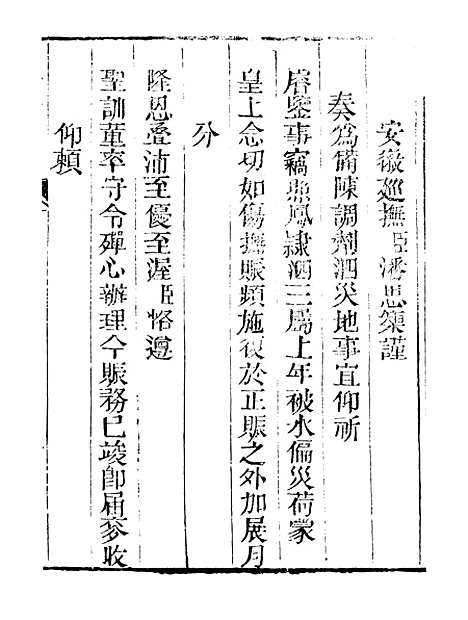 安徽廵撫臣潘思榘謹
奏爲備陳調劑泗災地事宜仰祈
睿鑒事竊照鳳𨽻泗三屬上年被水偏災荷蒙
皇上念切如傷撫賑頻施復於正賑之外加展月
分
隆恩叠沛至優至渥臣恪遵
聖訓董率守令殫心辦理今賑務已竣卽届麥收
仰賴